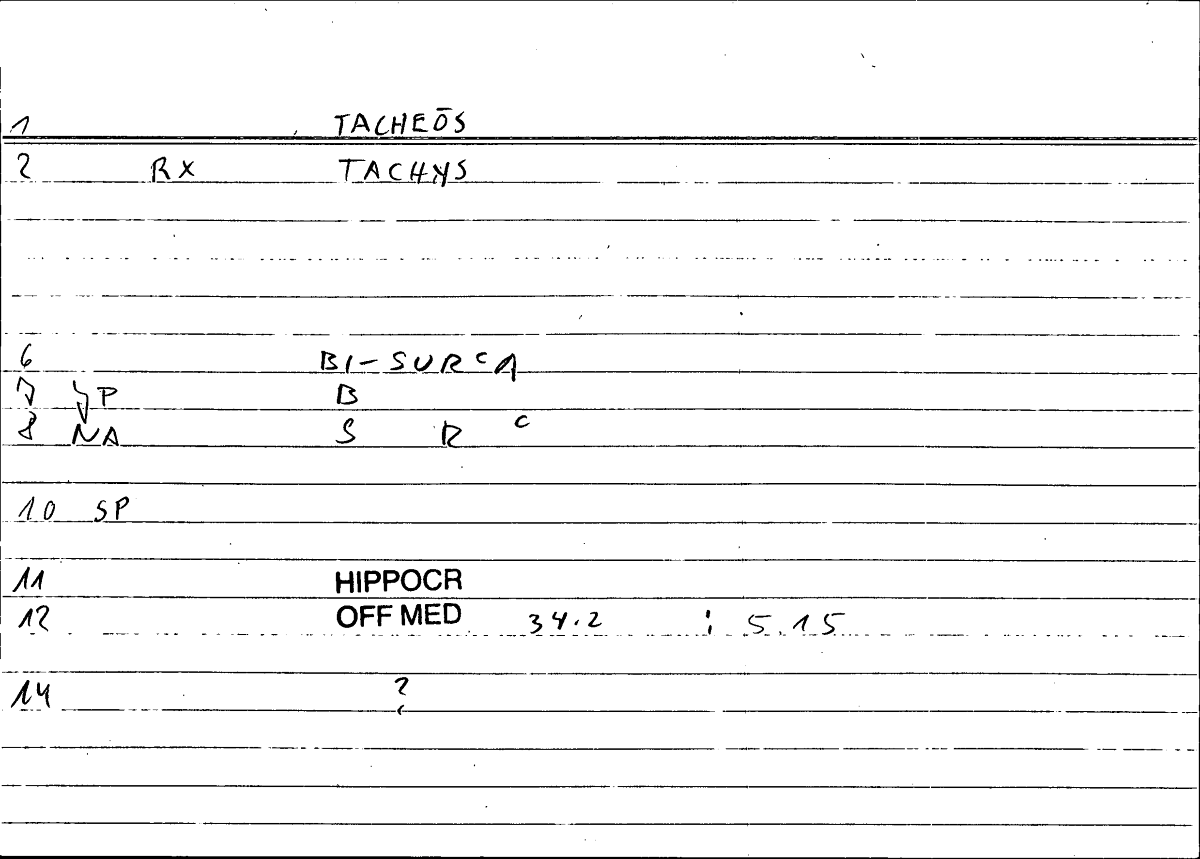 1 TACHEŌS
2 RX TACHYS
6 BI-SURCA
7 SP B
8 NA S R C
10 SP
11 HIPPOCR
12 OFF MED 34.2 : 5.15
14 ?